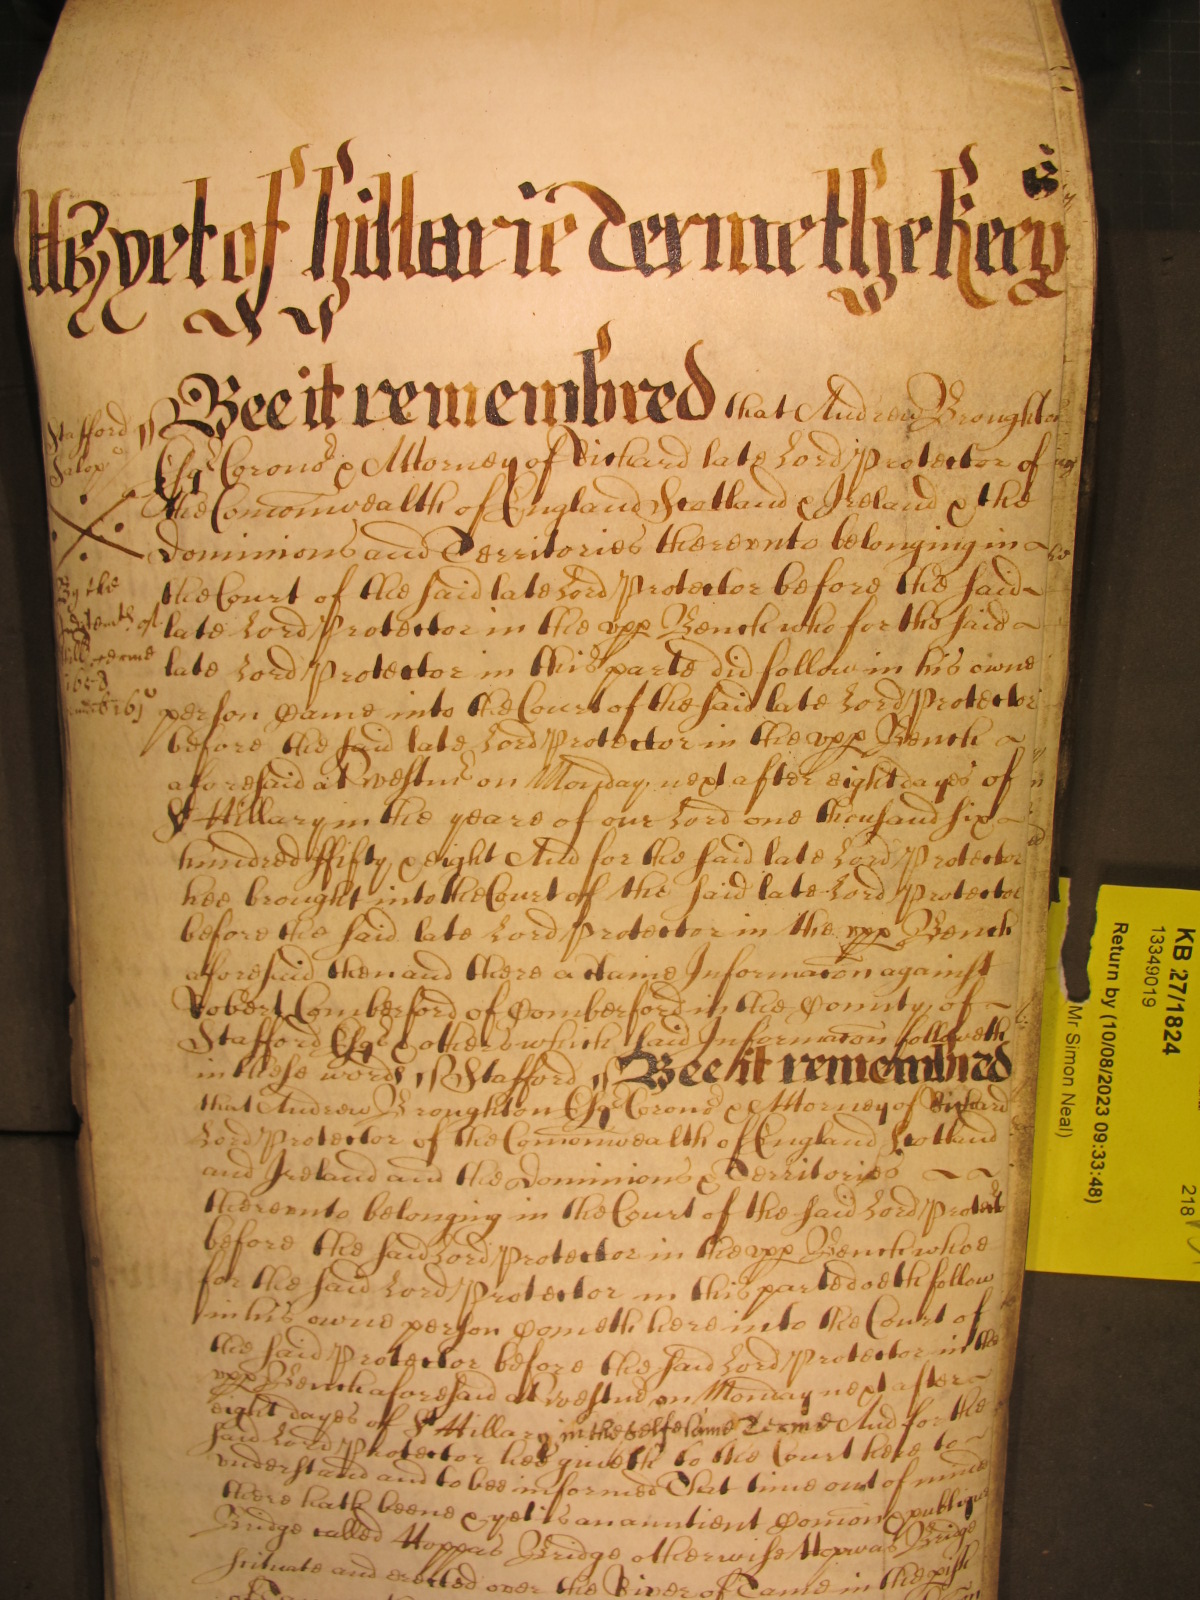 As yet of Hillarie Terme the Keep
Stafford ss Bee it remembred that Andrew Broughton
Salop
Esqr Corono & Attorney of Richard late Lord Protector of
the Comonwealth of England Scotland & Ireland & the
Dominions and Territories therevnto belonging in
By the
the Court of the said late Lord Protector before the said
late Lord Protector in the vpp Bench who for the said
Hill terme
late Lord Protector in this parte did follow in his owne
1658
person Came into the Court of the said late Lord Protector
before the said late Lord Protector in the vpp Bench
aforesaid at Westmr on Monday next after eight dayes of
St Hillary in the yeare of our Lord one thousand six
hundred ffifty & eight And for the said late Lord Protector
hee brought into the Court of the said late Lord Protector
before the said late Lord Protector in the vpp Bench
aforesaid then and there a ctaine Informacon against
Robert Comberford of Comberford in the County of
Stafford Esqr & others which said Informacon followeth
in these words ss Stafford ss Bee it remembred
that Andrew Broughton Esqr Corono & Attorney of Richard
Lord Protector of the Comonwealth of England Scotland
and Ireland and the Dominions & Territories
therevnto belonging in the Court of the said Lord Protector
before the said Lord Protector in the vpp Bench whoe
for the said Lord Protector in this parte doeth follow
in his owne person Cometh here into the Court of
the said Protector before the said Lord Protector in the
vpp Bench aforesaid at Westmr on Monday next after
eight dayes of St Hillary in the selfe same Terme And for the
said Lord Protector hee giueth to the Court here to
vnderstand and to bee informed That time out of minde
there hath beene & yet is an auntient Comon & publique
Bridge called Hoppas Bridge otherwise Hopwas Bridge
scituate and erected over the River of Tame in the pish
KB 27/1824
13349019
Return by (10/08/2023 09:33:48)
218
Mr Simon Neal)